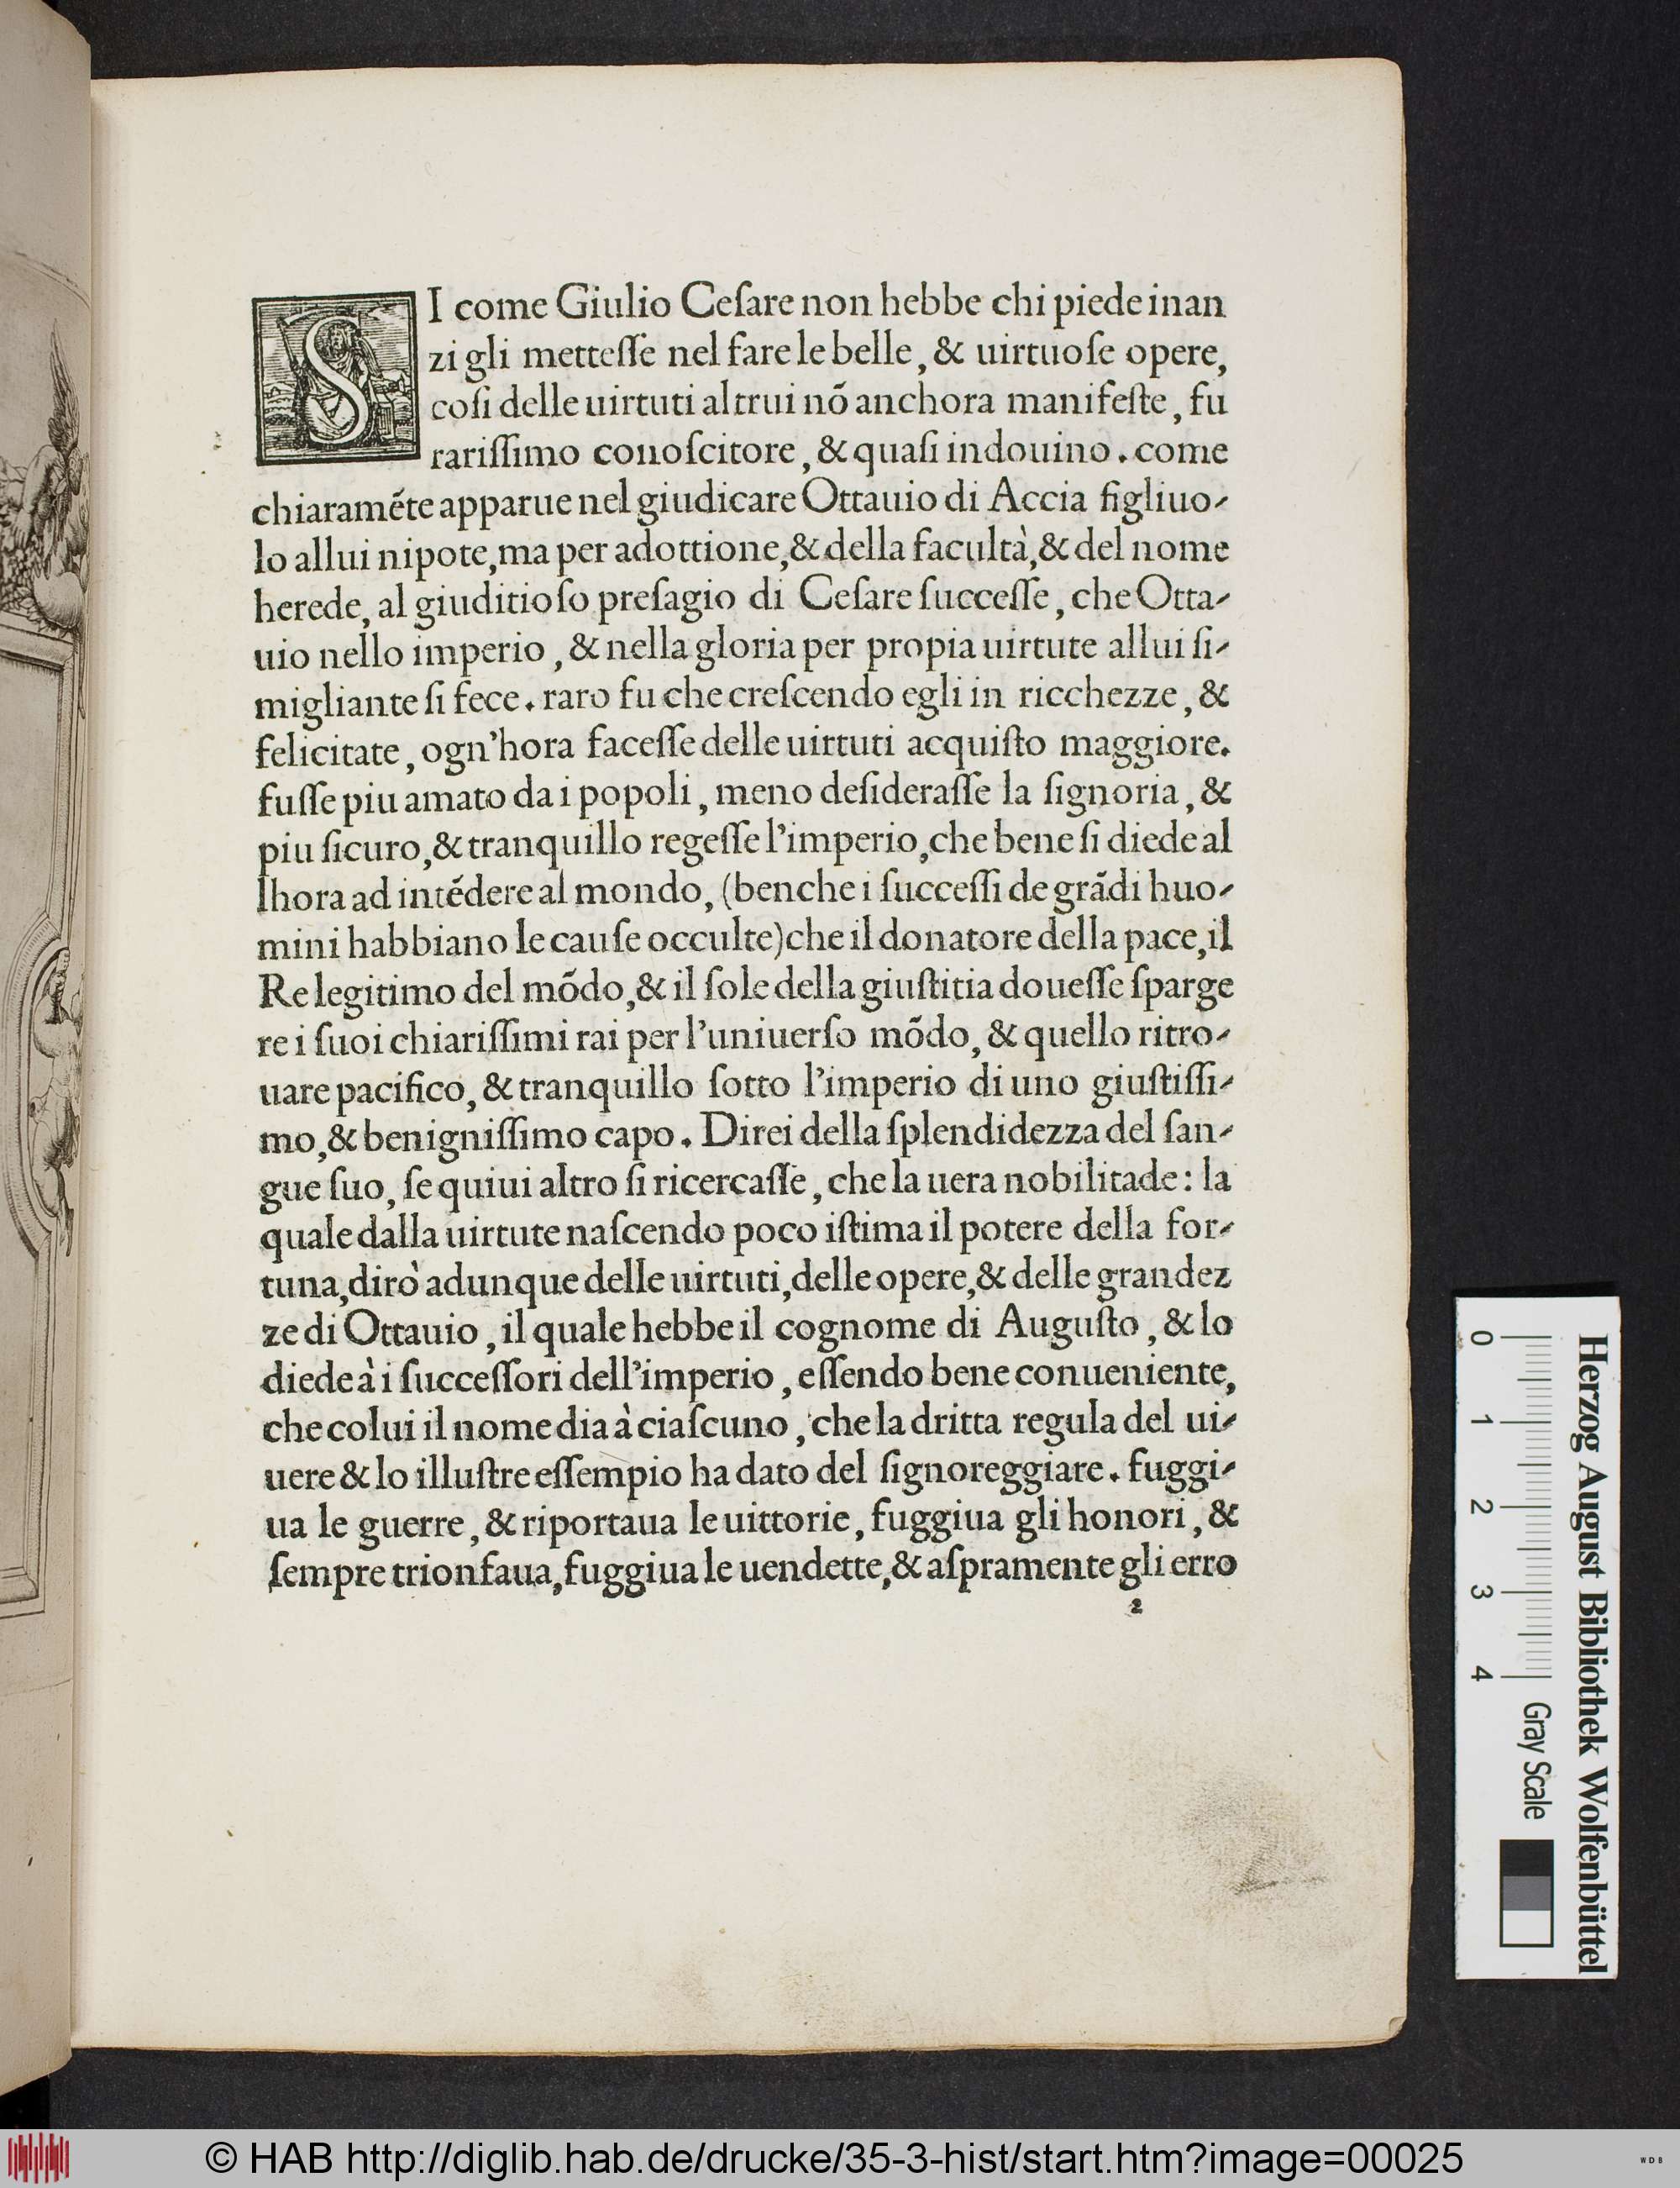 SI come Giulio Ceſare non hebbe chi piede inan
zi gli metteſſe nel fare le belle, & uirtuoſe opere,
coſi delle uirtuti altrui nõ anchora manifeſte, fu
rariſſimo conoſcitore, & quaſi indouino. come
chiaramẽte apparue nel giudicare Ottauio di Accia figliuo-
lo allui nipote, ma per adottione, & della facultà, & del nome
herede, al giuditioſo preſagio di Ceſare ſucceſſe, che Otta-
uio nello imperio, & nella gloria per propia uirtute allui ſi-
migliante ſi fece. raro fu che creſcendo egli in ricchezze, &
felicitate, ogn'hora faceſſe delle uirtuti acquiſto maggiore.
fuſſe piu amato da i popoli, meno deſideraſſe la ſignoria, &
piu ſicuro, & tranquillo regeſſe l'imperio, che bene ſi diede al
lhora ad intẽdere al mondo, (benche i ſucceſſi de grãdi huo-
mini habbiano le cauſe occulte) che il donatore della pace, il
Re legitimo del mõdo, & il ſole della giuſtitia doueſſe ſparge
re i ſuoi chiariſſimi rai per l'uniuerſo mõdo, & quello ritro-
uare pacifico, & tranquillo ſotto l'imperio di uno giuſtiſſi-
mo, & benigniſſimo capo. Direi della ſplendidezza del ſan-
gue ſuo, ſe quiui altro ſi ricercaſſe, che la uera nobilitade: la
quale dalla uirtute naſcendo poco iſtima il potere della for-
tuna, dirò adunque delle uirtuti, delle opere, & delle grandez
ze di Ottauio, il quale hebbe il cognome di Auguſto, & lo
diede à i ſucceſſori dell'imperio, eſſendo bene conueniente,
che colui il nome dia à ciaſcuno, che la dritta regula del ui-
uere & lo illuſtre eſſempio ha dato del ſignoreggiare. fuggi-
ua le guerre, & riportaua le uittorie, fuggiua gli honori, &
ſempre trionfaua, fuggiua le uendette, & aſpramente gli erro
2
Herzog August Bibliothek Wolfenbüttel
0 1 2 3 4 Gray Scale
© HAB http://diglib.hab.de/drucke/35-3-hist/start.htm?image=00025
WDB